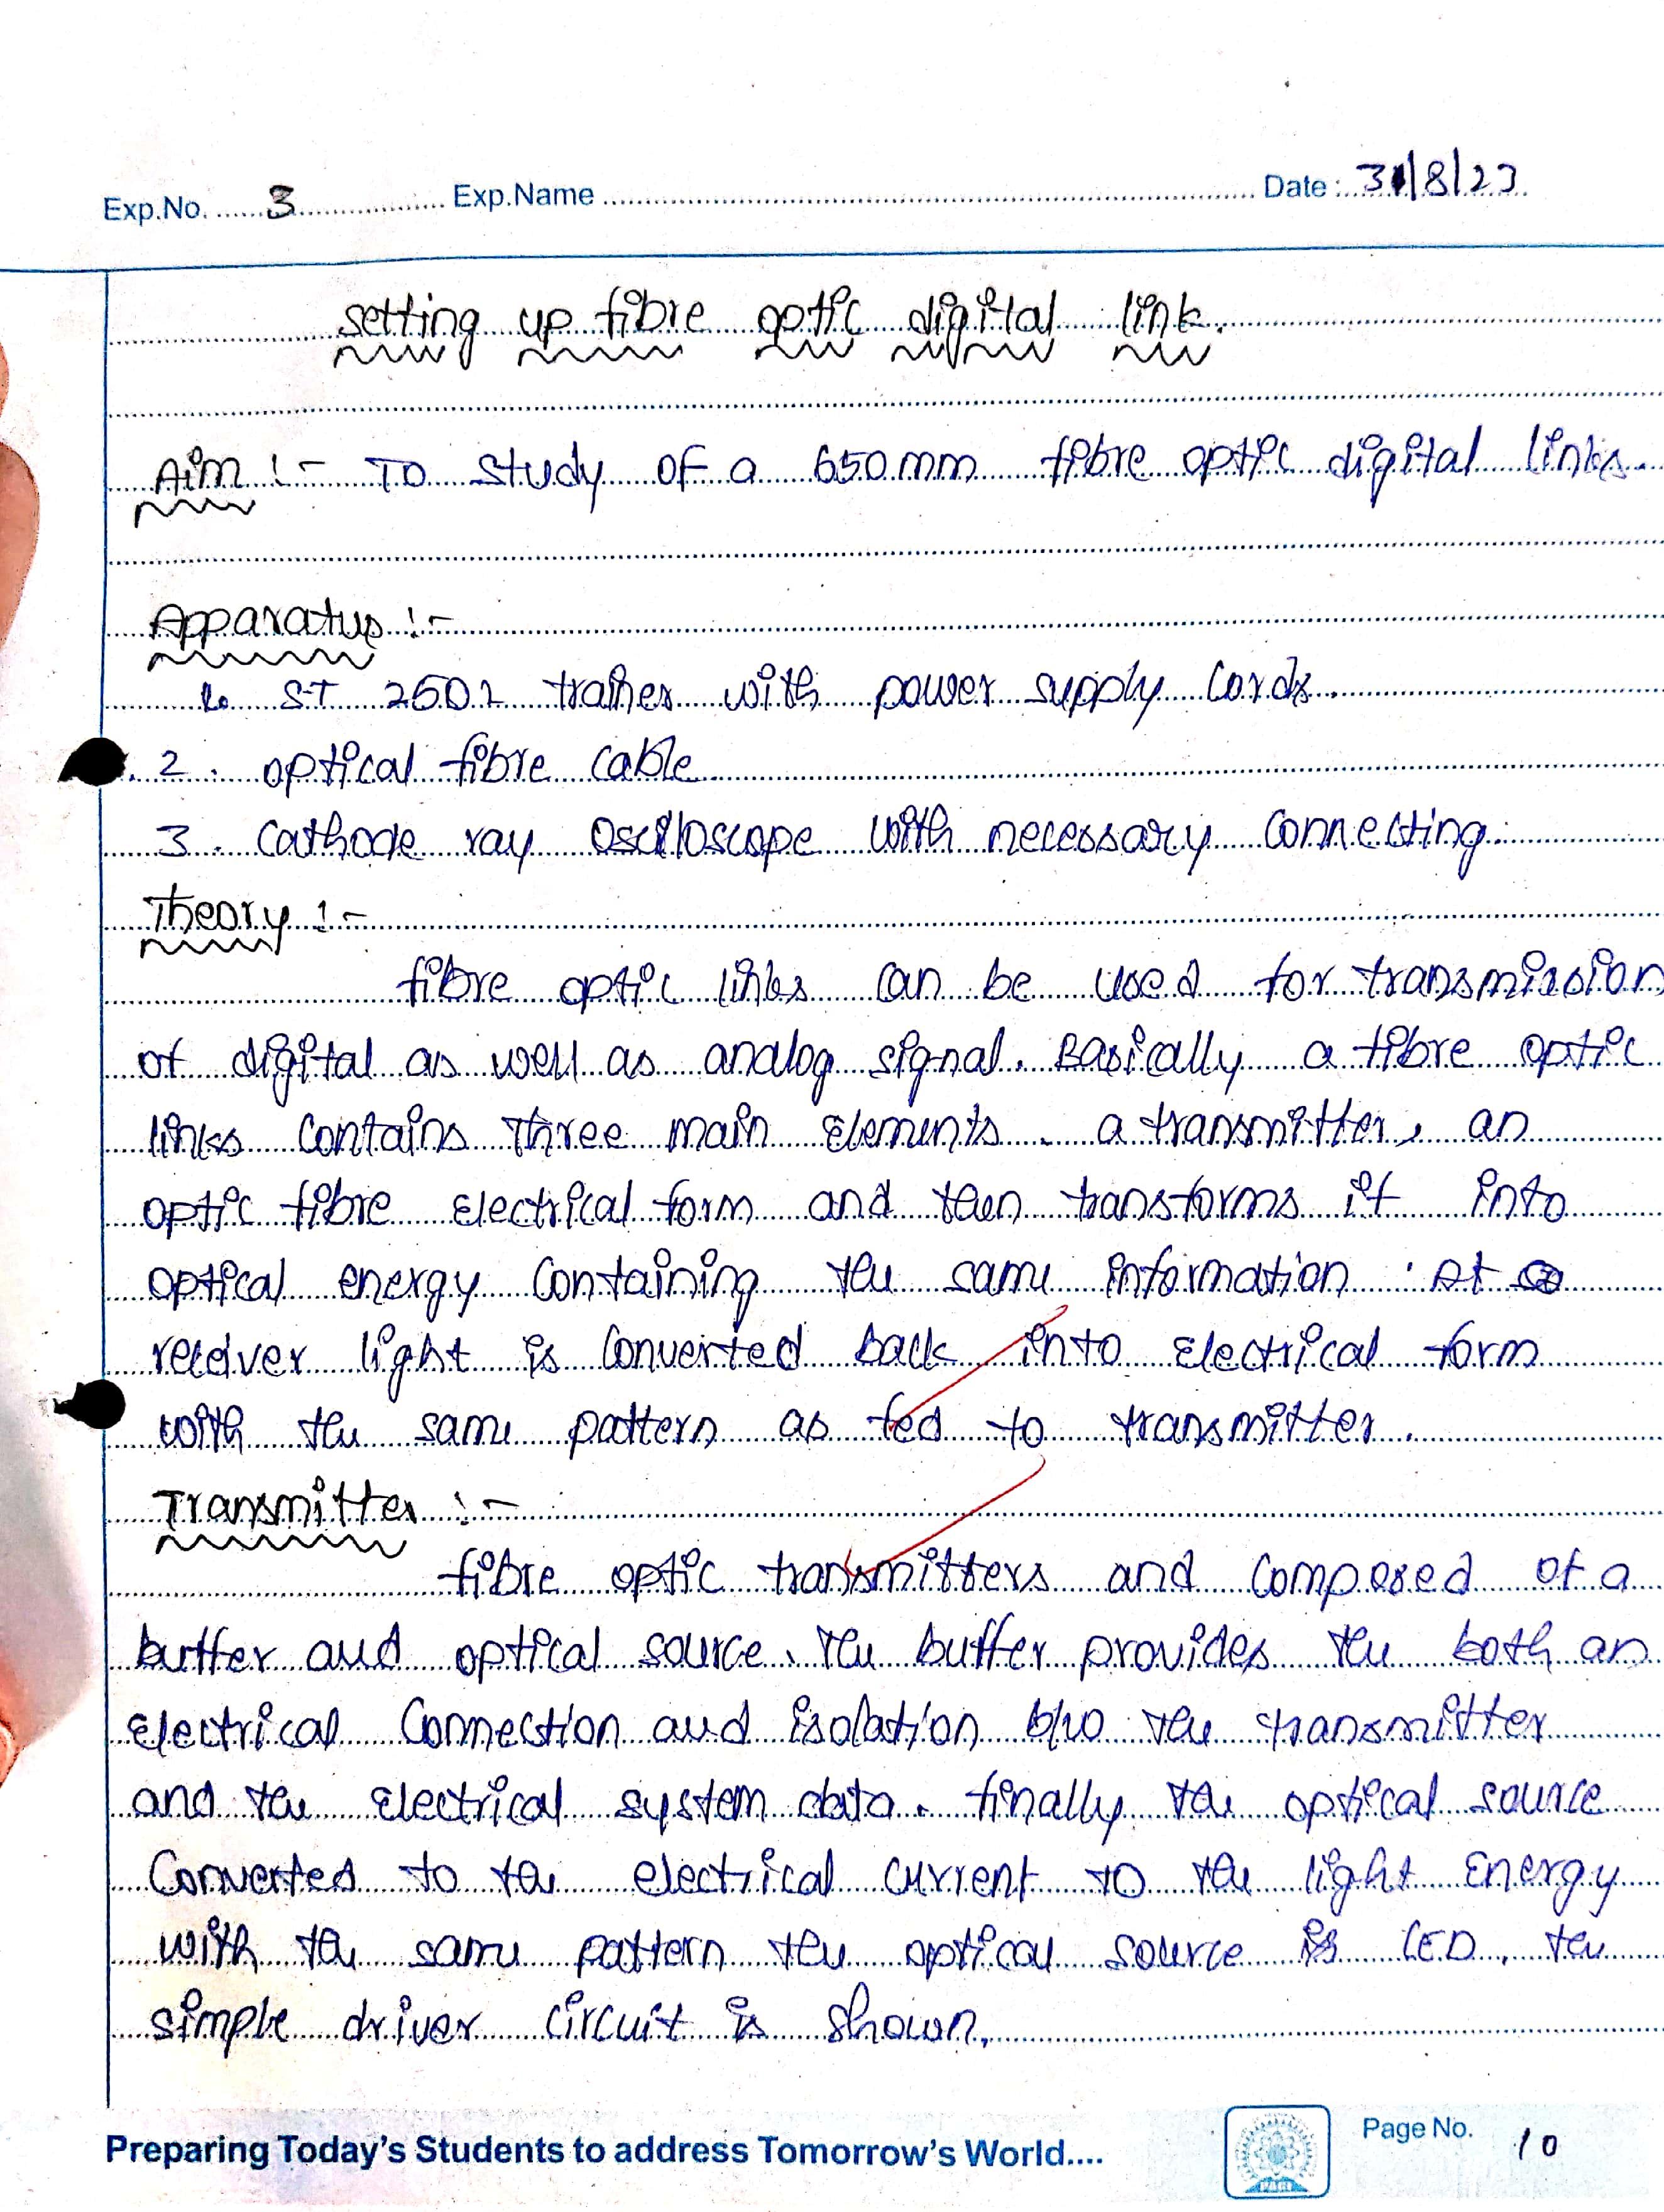 Exp.No. 3 Exp.Name Date : 31/8/23
setting up fibre optic digital link.
Aim :- To study of a 650mm fibre optic digital links.
Apparatus :-
1. ST 2501 trainer with power supply cords.
2. optical fibre cable
3. Cathode ray Oscilloscope with necessary connecting.
Theory :-
fibre optic links can be used for transmission
of digital as well as analog signal. Basically a fibre optic
links contains three main elements . a transmitter, an
optic fibre electrical form and then transforms it into
optical energy containing the same information . At
receiver light is converted back into electrical form
with the same pattern as fed to transmitter.
Transmitter :-
fibre optic transmitters and composed of a
buffer and optical source. The buffer provides the both an
electrical connection and isolation b/w the transmitter
and the electrical system data. finally the optical source
Converted to the electrical current to the light Energy
with the same pattern the optical source is LED. the
simple driver circuit is shown.
Preparing Today's Students to address Tomorrow's World....
Page No. 10